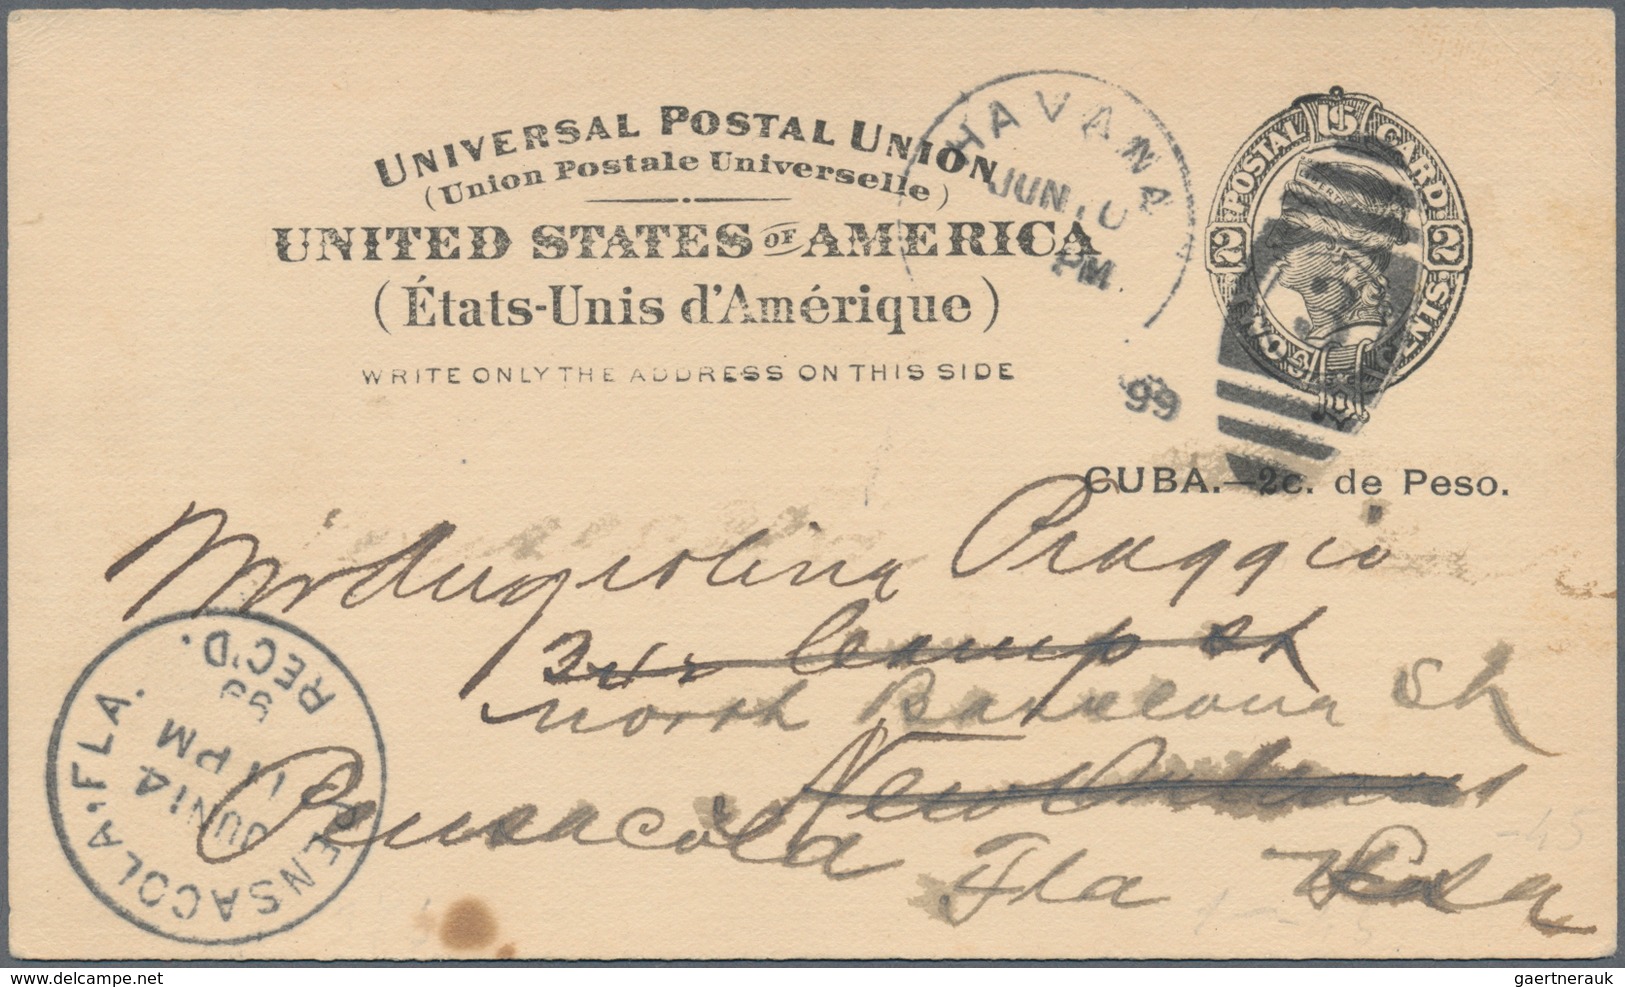 UNIVERSAL POSTAL UNION
(Union Postale Universelle)
UNITED STATES OF AMERICA
(États-Unis d'Amérique)
WRITE ONLY THE ADDRESS ON THIS SIDE
HAVANA
JUN
PM
99
POSTAL CARD
2 2
CUBA.—2c. de Peso.
Praggio
Camp St
North Barcelona St
New Orleans
Pensacola Fla
PENSACOLA, FLA.
JUN 14
11 PM
99
REC'D.
-45
Delcampe.net
gaertnerauk